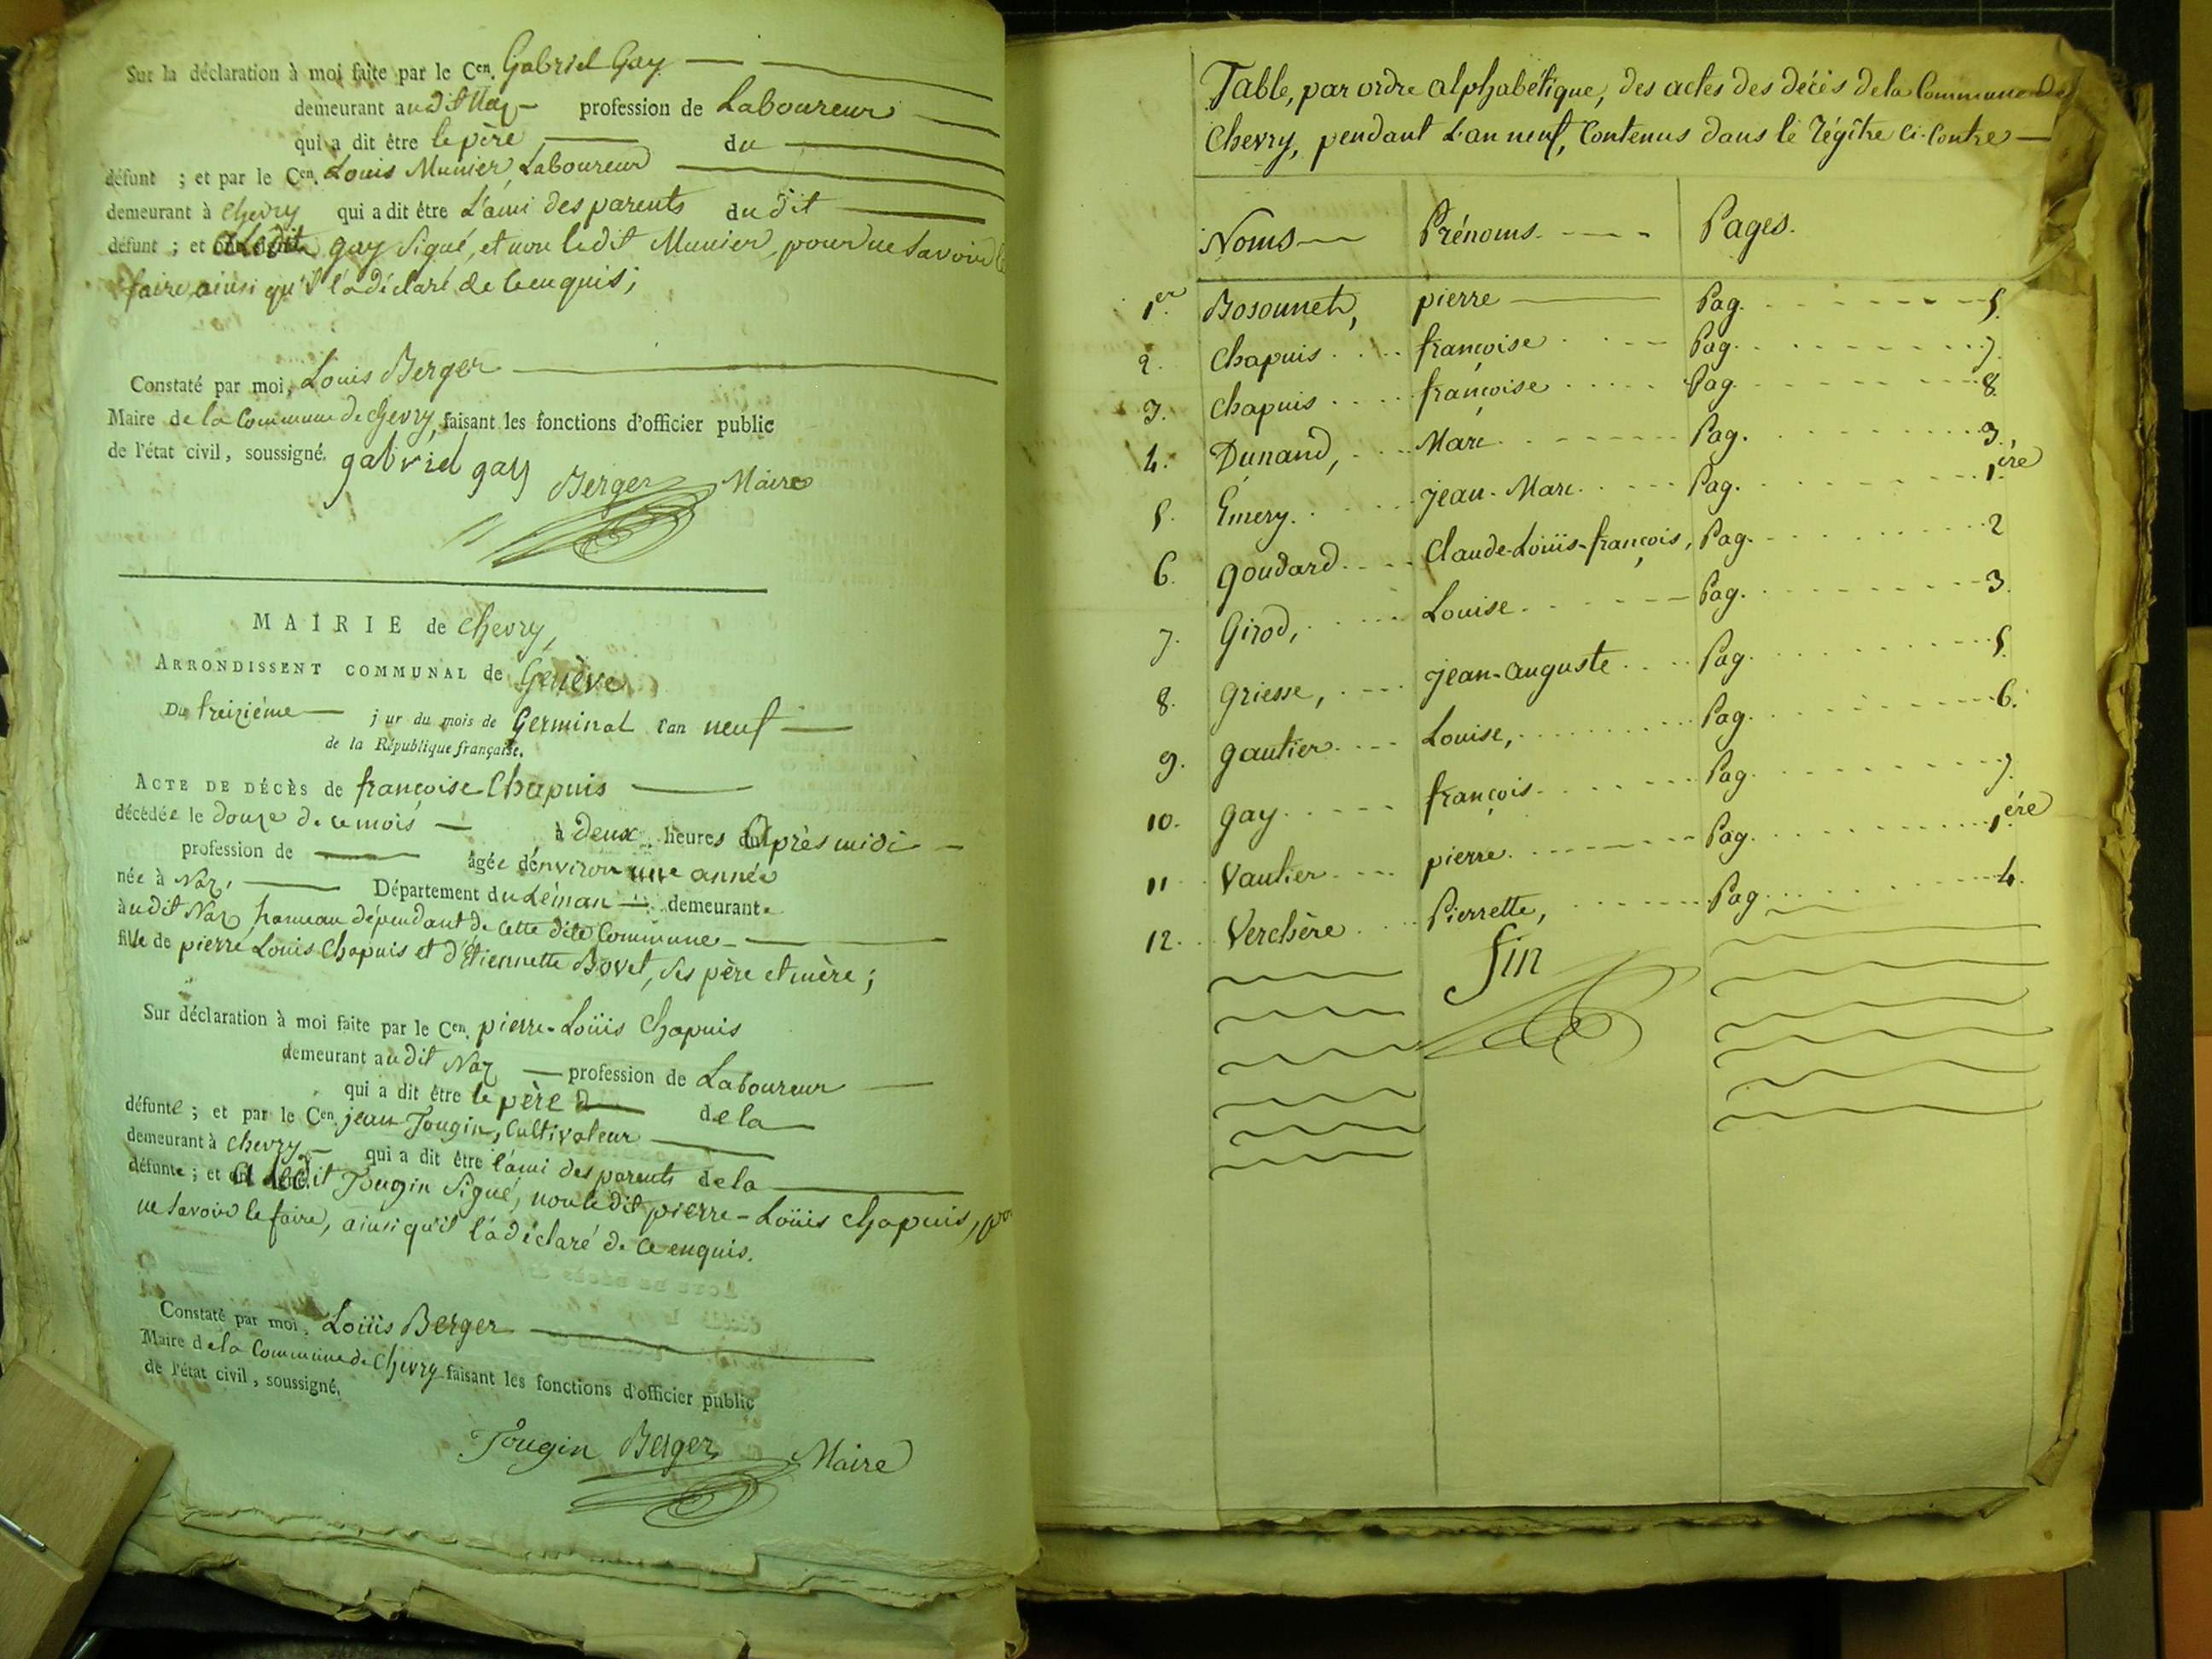 Sur la déclaration à moi faite par le Cen. Gabriel Gay
demeurant audit Naz profession de Laboureur
qui a dit être le père du
défunt ; et par le Cen. Louis Munier, Laboureur
demeurant à Chevry qui a dit être L'ami des parents dudit
défunt ; et a ledit gay signé, et non ledit Munier, pour ne savoir le
faire, ainsi qu'il l'a déclaré de ce enquis ;
Constaté par moi, Louis Berger
Maire de la Commune de Chevry, faisant les fonctions d'officier public
de l'état civil, soussigné.
gabriel gay Berger Maire
MAIRIE de Chevry,
ARRONDISSENT COMMUNAL de Genève
Du treizième jur du mois de Germinal l'an neuf
de la République française.
ACTE DE DÉCÈS de françoise Chapuis
décédée le douze de ce mois à deux heures du Après midi
profession de âgée d'environ une année
née à Naz, Département du Léman demeurant
audit Naz hameau dépendant de cette dite Commune
fille de pierre Louis Chapuis et d'Etiennette Bovet, ses père et mère ;
Sur déclaration à moi faite par le Cen. pierre-Loüis Chapuis
demeurant audit Naz profession de Laboureur
qui a dit être le père de la
défunte ; et par le Cen. jean Tougin, Cultivateur
demeurant à Chevry qui a dit être l'ami des parents de la
défunte ; et a ledit Tougin signé, non ledit pierre-Loüis chapuis,
ne savoir le faire, ainsi qu'il l'a déclaré de ce enquis.
Constaté par moi, Loüis Berger
Maire de la Commune de Chevry faisant les fonctions d'officier public
de l'état civil, soussigné.
Tougin Berger Maire
Table, par ordre alphabétique, des actes des décès de la Commune de
Chevry, pendant L'an neuf, Contenus dans le régître ci-Contre
Noms Prénoms Pages.
1er Bosonnet, pierre Pag. 5.
2. Chapuis françoise Pag. 7.
3. Chapuis françoise Pag. 8.
4. Dunand, Marc Pag. 3.
5. Émery. jean-Marc Pag. 1ère
6. goudard Claude-Loüis-françois, Pag. 2
7. Girod, Louise Pag. 3.
8. griesse, jean-auguste Pag. 5.
9. gautier Louise, Pag. 6.
10. gay françois Pag. 7.
11 Vautier pierre Pag. 1ère
12. Verchère Pierrette, Pag. 4.
fin